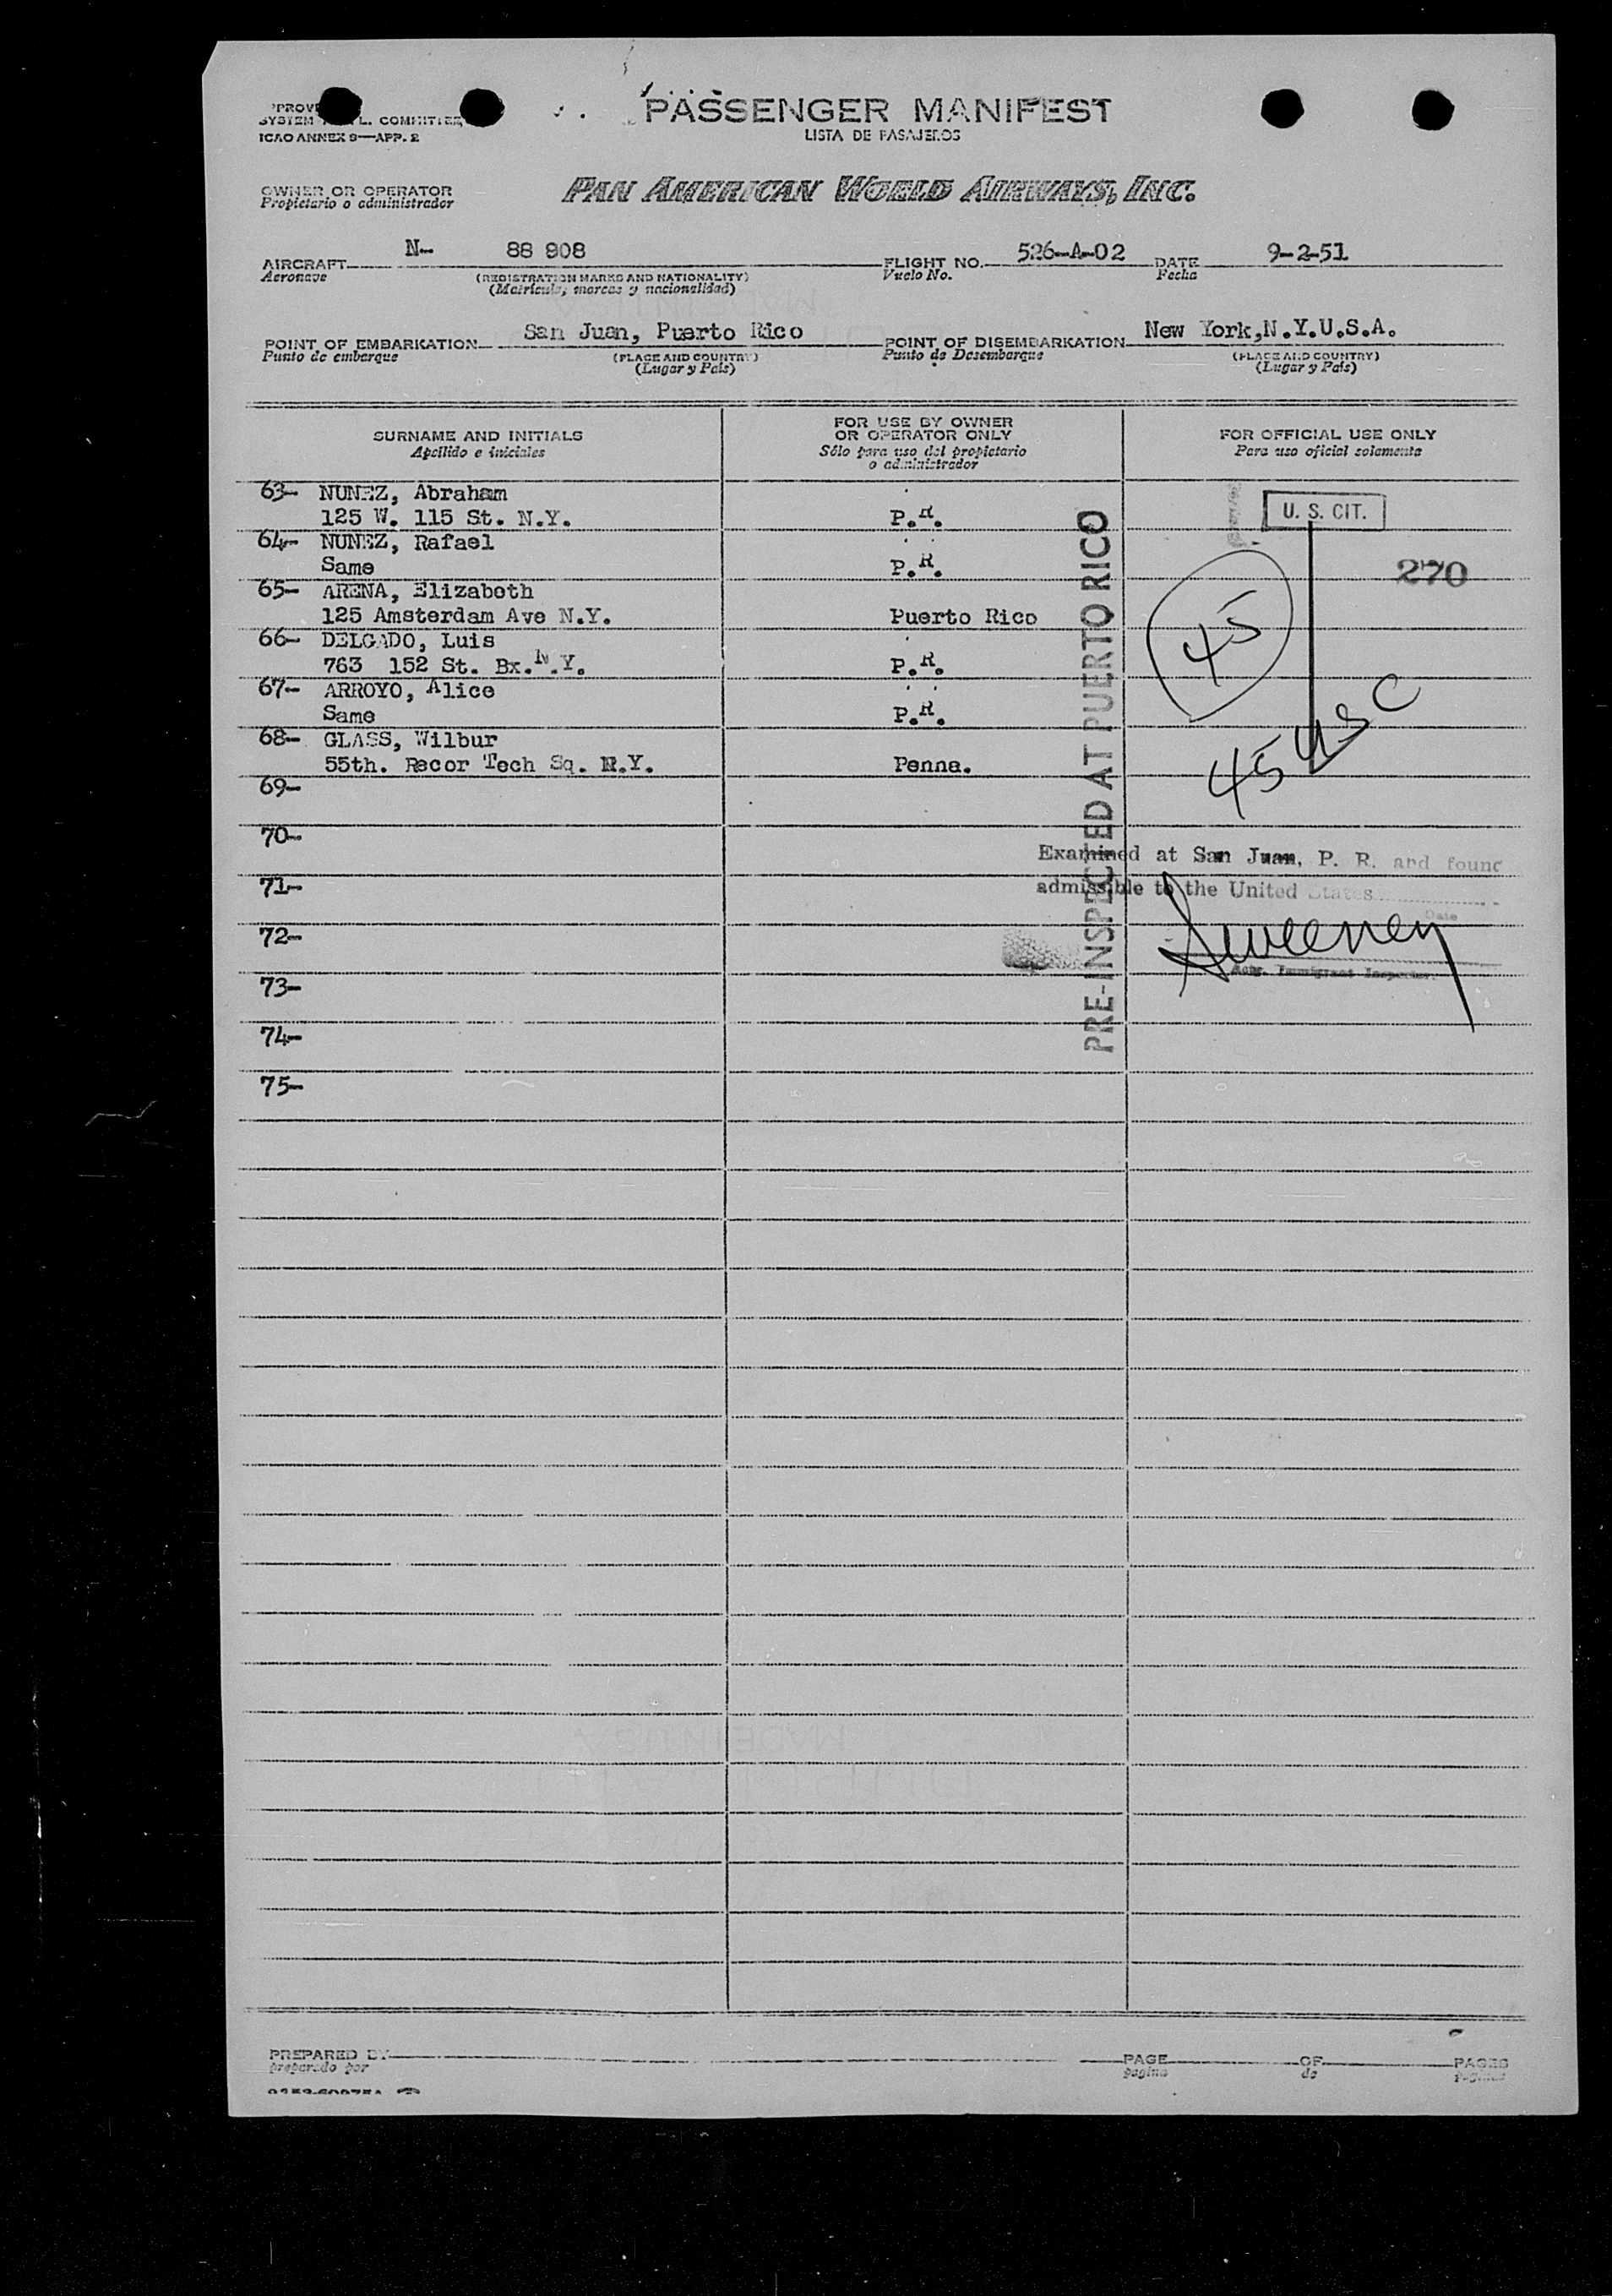 SYSTEM
L. COMMITTEE,
ICAO ANNEX 9—APP. 2
PASSENGER MANIFEST
LISTA DE PASAJEROS
OWNER OR OPERATOR
Propietario o administrador
PAN AMERICAN WORLD AIRWAYS, INC.
AIRCRAFT N- 88 908 FLIGHT NO. 526-A-02 DATE 9-2-51
Aeronave (REGISTRATION MARKS AND NATIONALITY) Vuelo No. Fecha
(Matrícula, marcas y nacionalidad)
POINT OF EMBARKATION San Juan, Puerto Rico POINT OF DISEMBARKATION New York,N.Y.U.S.A.
Punto de embarque (PLACE AND COUNTRY) Punto de Desembarque (PLACE AND COUNTRY)
(Lugar y País) (Lugar y País)
SURNAME AND INITIALS
Apellido e iniciales
FOR USE BY OWNER
OR OPERATOR ONLY
Sólo para uso del propietario
o administrador
FOR OFFICIAL USE ONLY
Para uso oficial solamente
63- NUNEZ, Abraham
125 W. 115 St. N.Y. P.R.
U. S. CIT.
64- NUNEZ, Rafael
Same P.R.
270
65- ARENA, Elizabeth
125 Amsterdam Ave N.Y. Puerto Rico
45
66- DELGADO, Luis
763 152 St. Bx.N.Y. P.R.
67- ARROYO, Alice
Same P.R.
68- GLASS, Wilbur
55th. Recor Tech Sq. N.Y. Penna.
45 USC
69-
70-
71-
72-
73-
74-
75-
PRE-INSPECTED AT PUERTO RICO
Examined at San Juan, P. R. and found
admissible to the United States
Date
Sweeney
Actg. Immigrant Inspector
PREPARED BY PAGE OF PAGES
preparado por página de páginas